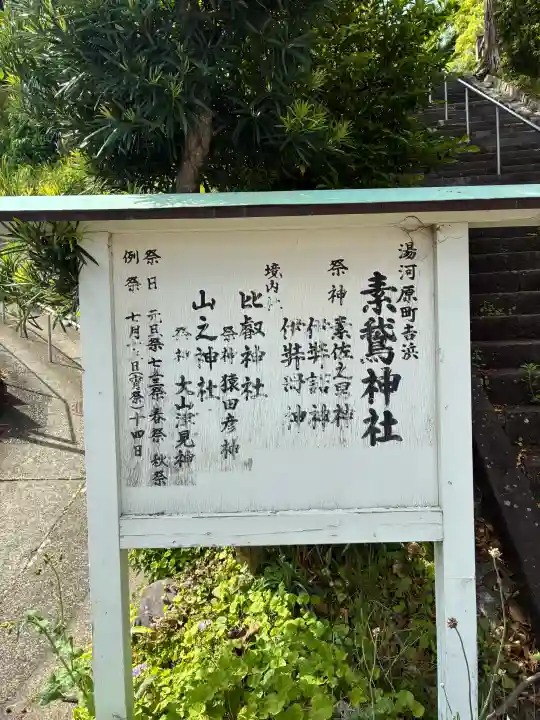 湯河原町吉浜
素鵞神社
祭神 素佐之男神
伊弉諾神
伊弉冊神
境内
比叡神社
祭神 猿田彦神
山之神社
祭神 大山津見神
祭日 元旦祭 七五三祭 春祭 秋祭
例祭 七月 日(宵祭)十四日